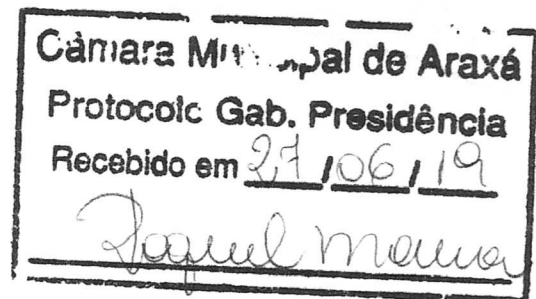 Câmara Municipal de Araxá
Protocolo Gab. Presidência
Recebido em 27/06/19
Raquel